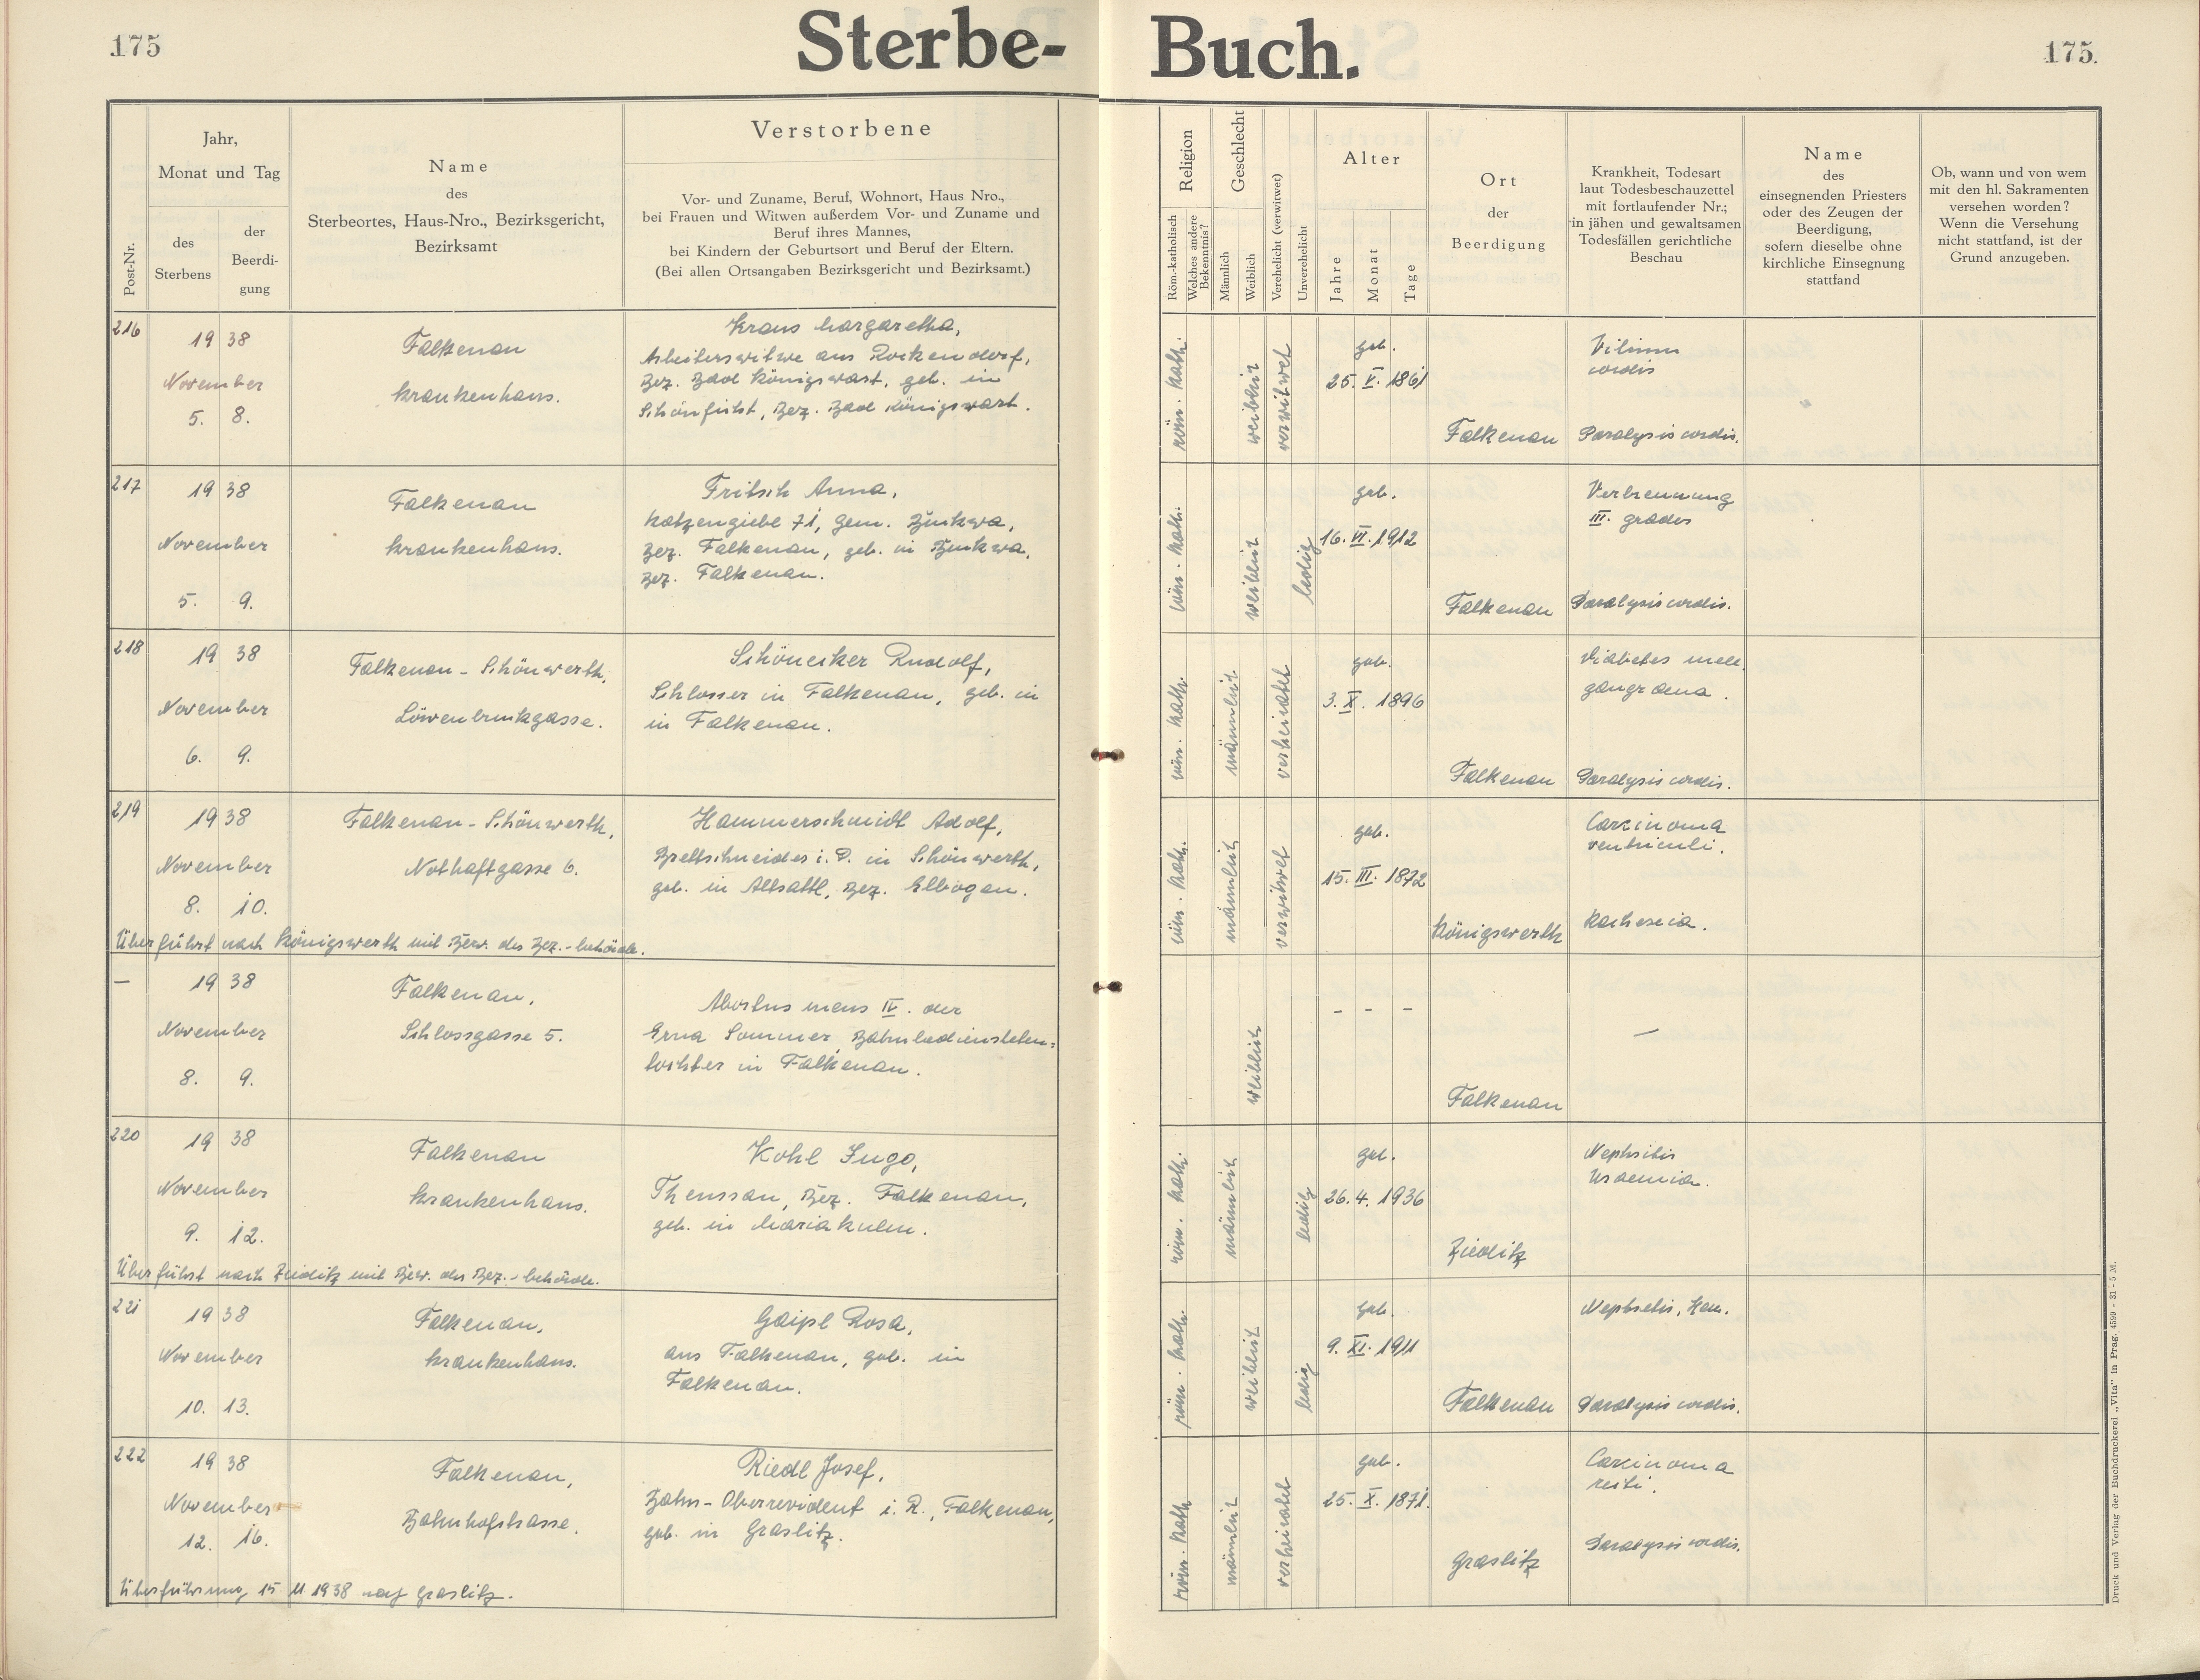 175
Sterbe-Buch.
175.
Post-Nr.
Jahr,
Monat und Tag
des
Sterbens
der
Beerdi-
gung
Name
des
Sterbeortes, Haus-Nro., Bezirksgericht,
Bezirksamt
Verstorbene
Vor- und Zuname, Beruf, Wohnort, Haus Nro.,
bei Frauen und Witwen außerdem Vor- und Zuname und
Beruf ihres Mannes,
bei Kindern der Geburtsort und Beruf der Eltern.
(Bei allen Ortsangaben Bezirksgericht und Bezirksamt.)
Religion
Röm.-katholisch
Welches andere
Bekenntnis?
Geschlecht
Männlich
Weiblich
Verehelicht (verwitwet)
Unverehelicht
Alter
Jahre
Monat
Tage
Ort
der
Beerdigung
Krankheit, Todesart
laut Todesbeschauzettel
mit fortlaufender Nr.;
in jähen und gewaltsamen
Todesfällen gerichtliche
Beschau
Name
des
einsegnenden Priesters
oder des Zeugen der
Beerdigung,
sofern dieselbe ohne
kirchliche Einsegnung
stattfand
Ob, wann und von wem
mit den hl. Sakramenten
versehen worden?
Wenn die Versehung
nicht stattfand, ist der
Grund anzugeben.
216
1938
November
5. 8.
Falkenau
Krankenhaus.
Kraus Margaretha,
Arbeiterswitwe aus Rockendorf,
Bez. Bad Königswart, geb. in
Schönficht, Bez. Bad Königswart.
röm. kath.
weiblich
verwitwet
geb.
25. V. 1861
Falkenau
Vitium
cordis
Paralysis cordis.
217
1938
November
5. 9.
Falkenau
Krankenhaus.
Fritsch Anna,
Katzengiebl 71, Gem. Zwickwa,
Bez. Falkenau, geb. in Zwickwa,
Bez. Falkenau.
röm. kath.
weiblich
ledig
geb.
16. VI. 1912
Falkenau
Verbrennung
III. grades
Paralysis cordis.
218
1938
November
6. 9.
Falkenau-Schönwerth,
Löwenbruckgasse.
Schönecker Rudolf,
Schlosser in Falkenau, geb. in
in Falkenau.
röm. kath.
männlich
verheiratet
geb.
3. X. 1896
Falkenau
Diabetes mell.
gangraena.
Paralysis cordis.
219
1938
November
8. 10.
Falkenau-Schönwerth,
Nothaftgasse 6.
Hammerschmidt Adolf,
Brettschneider i. P. in Schönwerth,
geb. in Altsattl, Bez. Elbogen.
Überführt nach Königswerth mit Bew. der Bez.-behörde.
röm. kath.
männlich
verwitwet
geb.
15. III. 1872
Königswerth
Carcinoma
ventriculi.
Kachexia.
—
1938
November
8. 9.
Falkenau,
Schlossgasse 5.
Abortus mens IV. der
Erna Sommer, Bahnbediensteten-
tochter in Falkenau.
weiblich
- - -
Falkenau
—
220
1938
November
9. 12.
Falkenau
Krankenhaus.
Kohl Hugo,
Theussau, Bez. Falkenau,
geb. in Mariakulm.
Überführt nach Zieditz mit Bew. der Bez.-behörde.
röm. kath.
männlich
ledig
geb.
26. 4. 1936
Zieditz
Nephritis
Uraemia.
221
1938
November
10. 13.
Falkenau,
Krankenhaus.
Gaipl Rosa,
aus Falkenau, geb. in
Falkenau.
röm. kath.
weiblich
ledig
geb.
9. XI. 1911
Falkenau
Paralysis cordis.
222
1938
November
12. 16.
Falkenau,
Bahnhofstrasse.
Riedl Josef,
Bahn-Oberrevident i. R., Falkenau,
geb. in Graslitz.
Überführung 15. 11. 1938 nach Graslitz.
röm. kath.
männlich
verheiratet
geb.
25. X. 1871.
Graslitz
Carcinoma
recti.
Paralysis cordis.
Druck und Verlag der Buchdruckerei „Vita" in Prag. 4599 - 31 - 5 M.